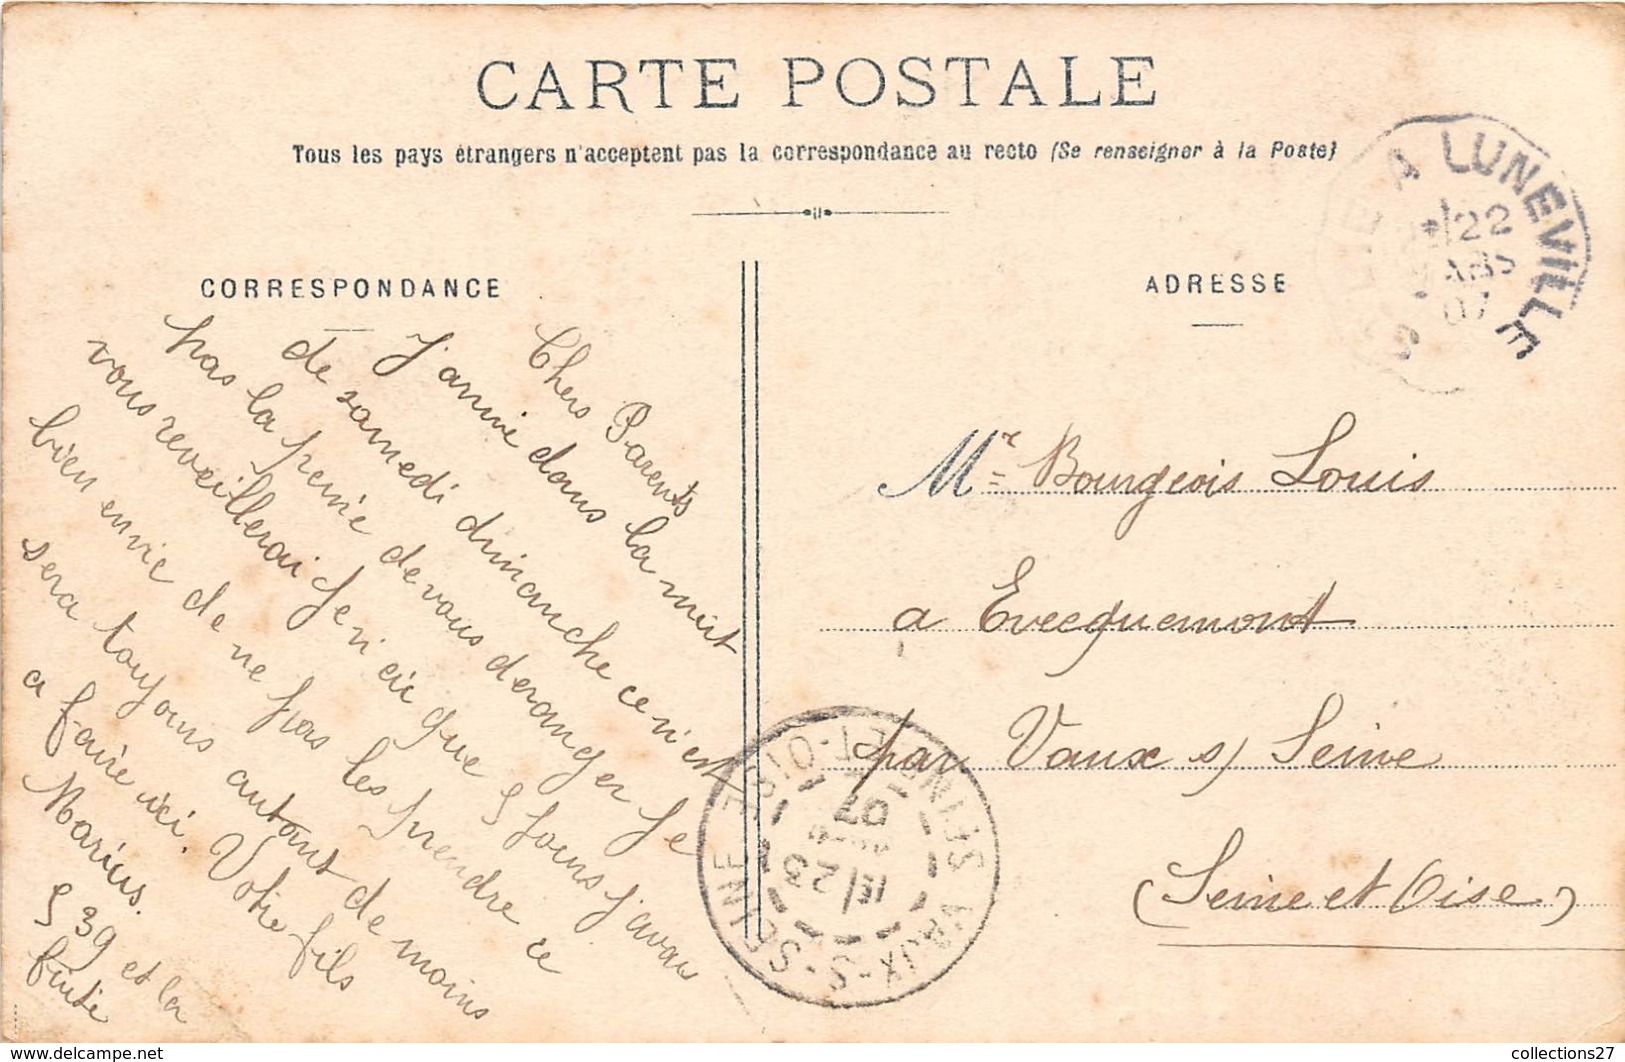 CARTE POSTALE
Tous les pays étrangers n'acceptent pas la correspondance au recto (Se renseigner à la Poste)
CORRESPONDANCE
ADRESSE
Chers Parents
J'arrive dans la nuit
de samedi dimanche ce n'est
pas la peine de vous deranger Je
vous reveillerai Je n'ai que 5 jours j'avai
bien envie de ne pas les prendre ce
sera toujours autant de moins
a faire ici. Votre fils
Marius.
539 et la
fuite
Mr Bourgeois Louis
a Evecquemont
par Vaux s/ Seine
(Seine et Oise)
A LUNEVILLE
22
07
VAUX-S-SEINE
SEINE-ET-OISE
23
07
www.delcampe.net
collections27